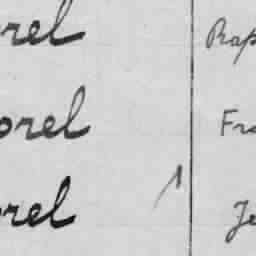 rel Rap
orel Fra
orel 1 Je